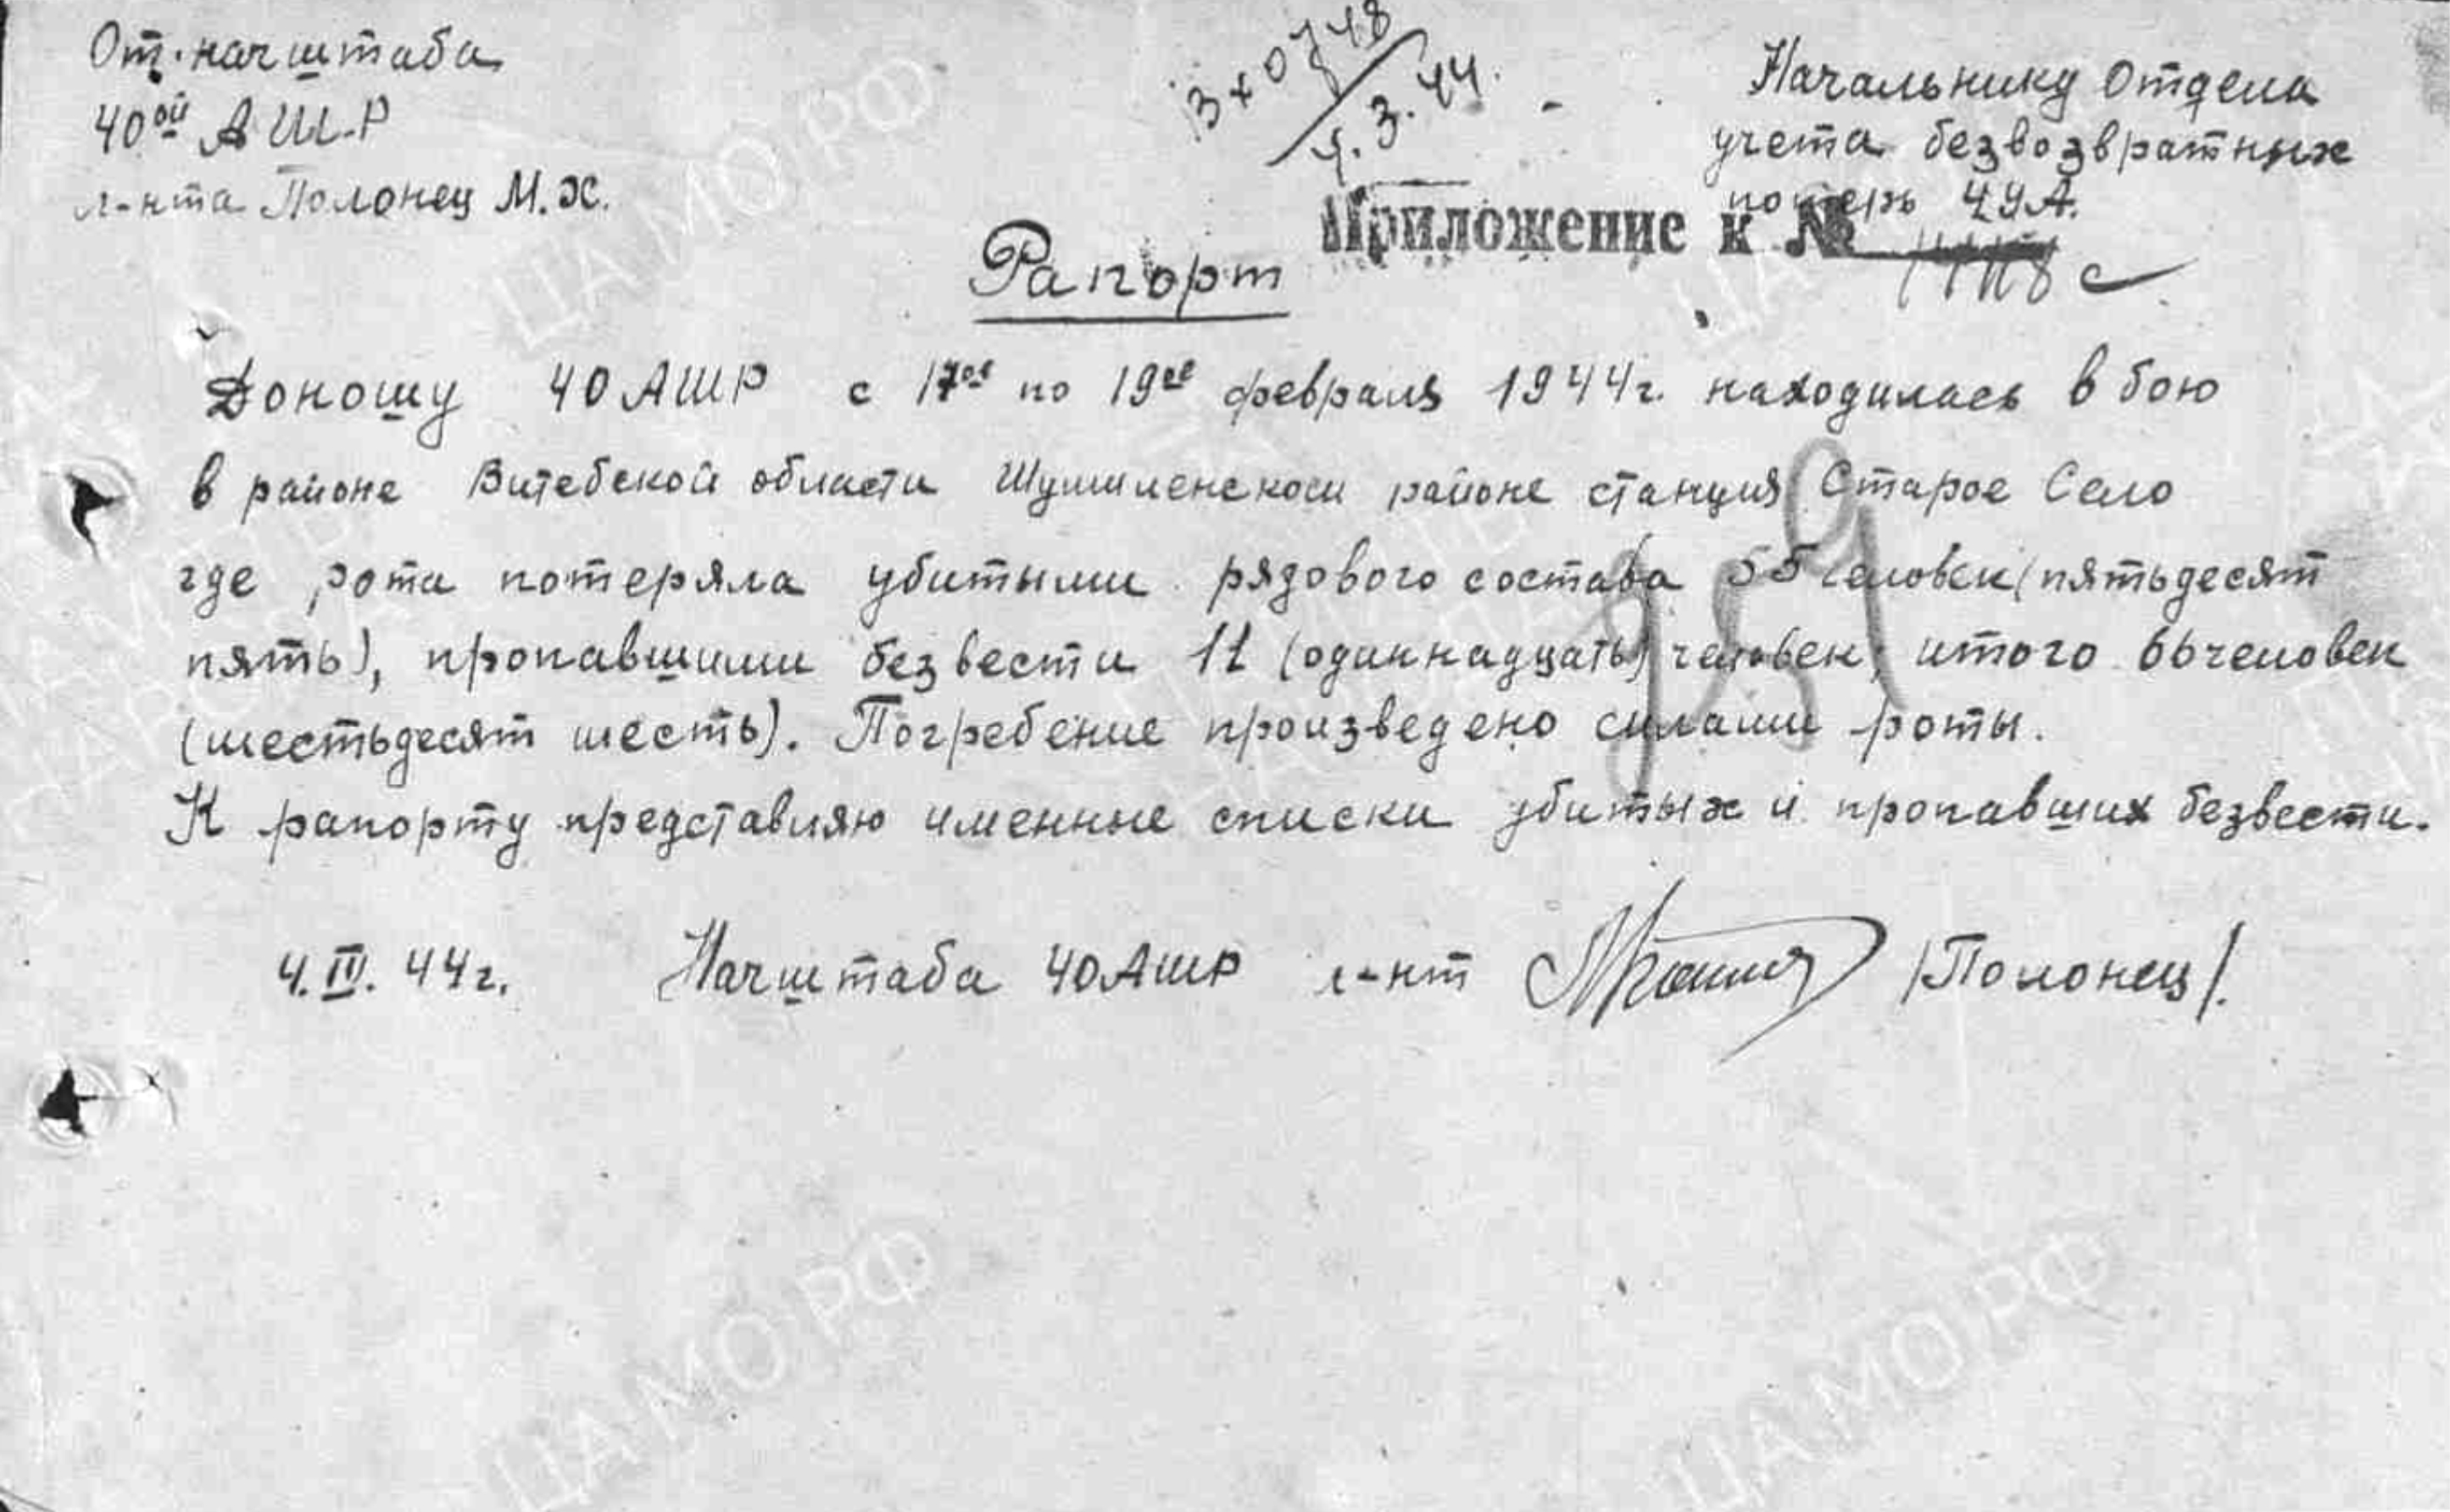 От начштаба
40ой АШР
л-нта Полонец М.Х.
Вх 0748
4.3.44.
Начальнику Отдела
учета безвозвратных
потерь 4УА.
Приложение к №
Рапорт
Доношу 40 АШР с 17ое по 19ое февраля 1944г. находилась в бою
в районе Витебской области Шумиленском районе станция Старое Село
где рота потеряла убитыми рядового состава 55 человек (пятьдесят
пять), пропавшими безвести 11 (одиннадцать) человек, итого 66 человек
(шестьдесят шесть). Погребение произведено силами роты.
К рапорту представляю именные списки убитых и пропавших безвести.
4.IV.44г. Начштаба 40АШР л-нт /Полонец/.
ЦАМО РФ